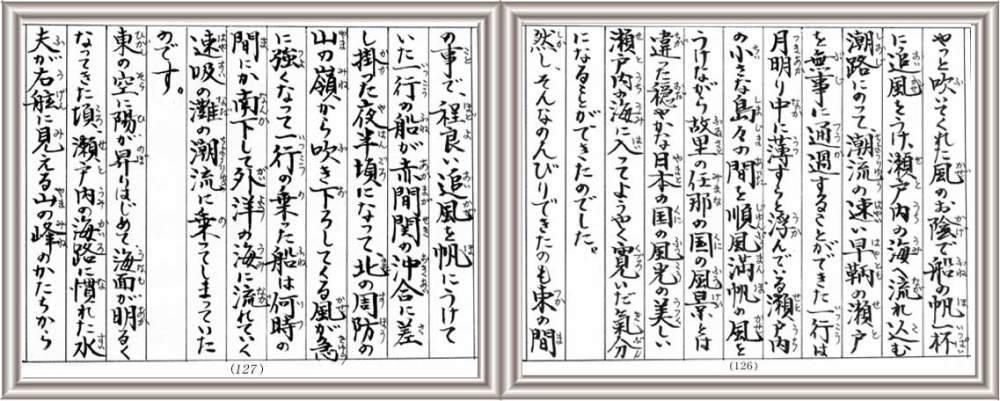 やっと吹いてくれた風のお陰で船の帆一杯
に追風をうけ、瀬戸内の海へ流れ込む
潮路にのって潮流の速い早鞆の瀬戸
を無事に通過することができた一行は
月明り中に薄すらと浮んでいる瀬戸内
の小さな島々の間を順風満帆の風を
うけながら故里の任那の国の風景とは
違った穏やかな日本の国の風光の美しい
瀬戸内の海に入ってようやく寛いだ氣分
になることができたのでした。
然し、そんなのんびりできたのも束の間
(126)
の事で、程良い追風を帆にうけて
いた一行の船が赤間関の沖合に差
し掛った夜半頃になって北の周防の
山の嶺から吹き下ろしてくる風が急
に強くなって一行の乗った船は何時の
間にか南下して外洋の海に流れていく
速吸の灘の潮流に乗ってしまっていた
のです。
東の空に陽が昇りはじめて海面が明るく
なってきた頃、瀬戸内の海路に慣れた水
夫が右舷に見える山の峰のかたちから
(127)